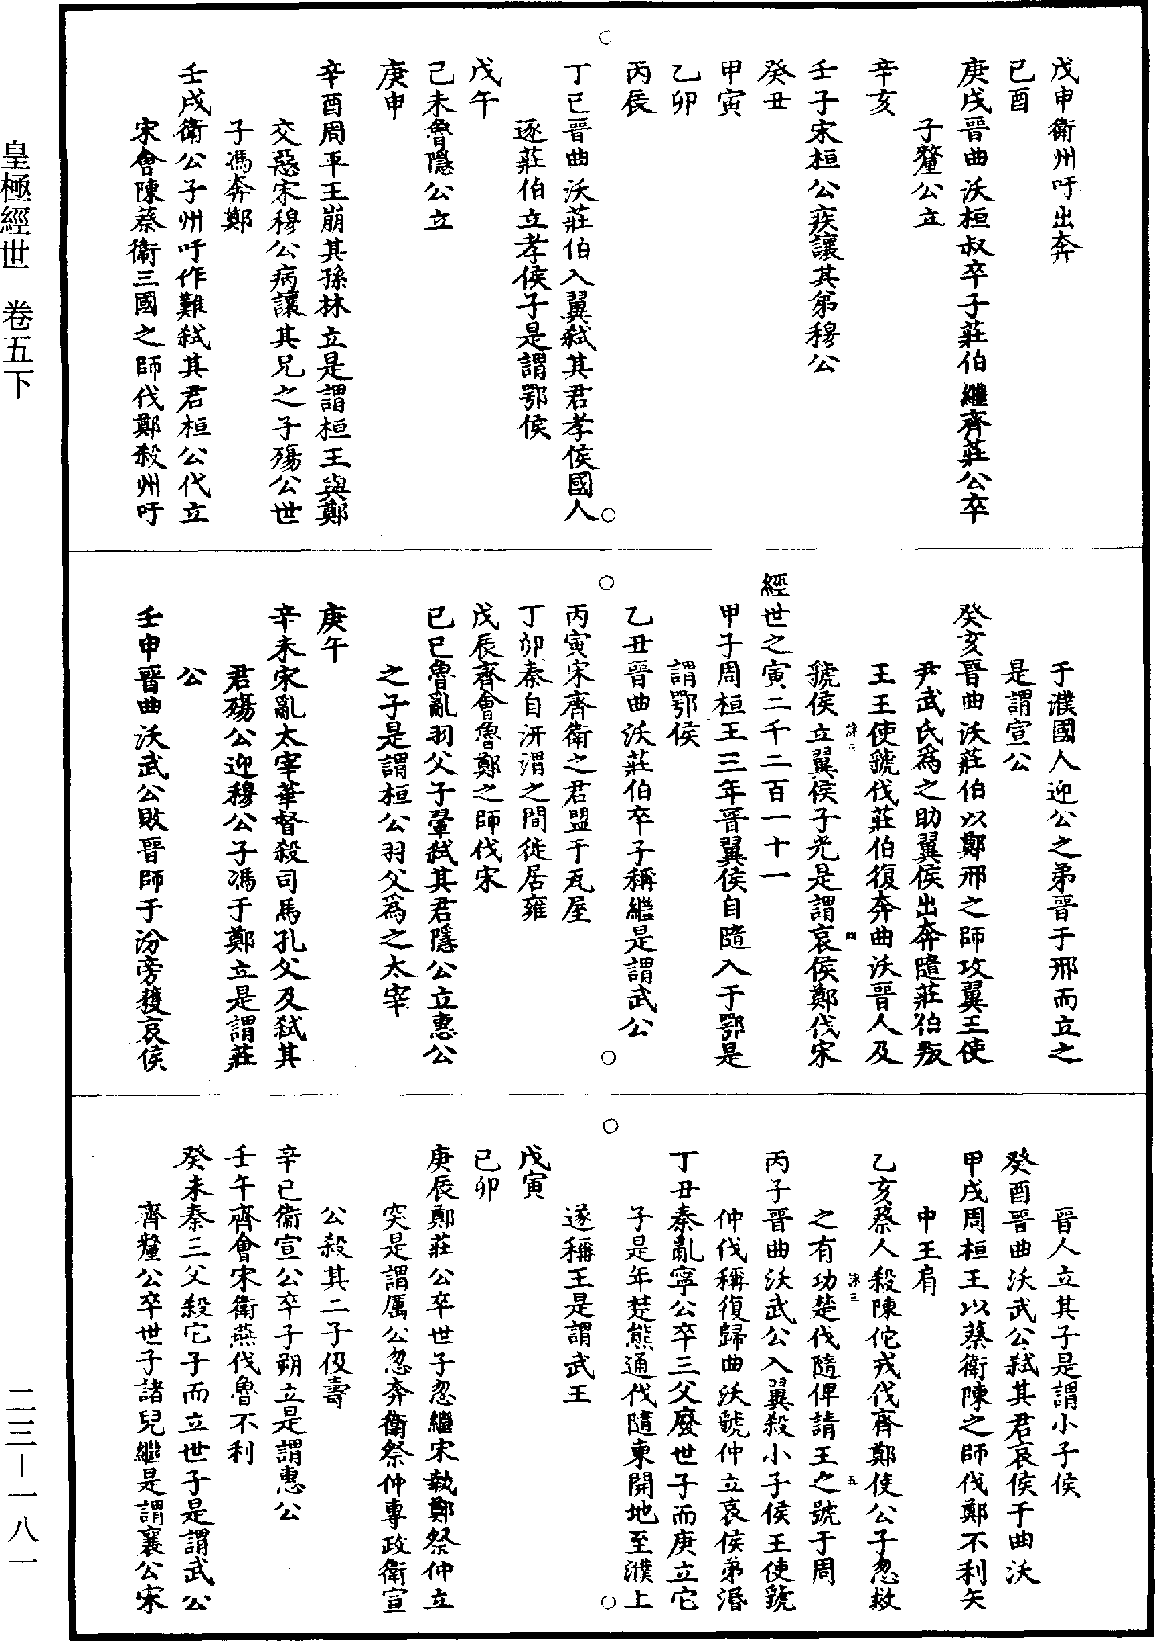 皇極經世　卷五下
戊申衛州吁出奔
己酉
庚戌晉曲沃桓叔卒子莊伯繼齊莊公卒
子釐公立
辛亥
壬子宋桓公疾讓其弟穆公
癸丑
甲寅
乙卯
丙辰
丁已晉曲沃莊伯入翼弒其君孝侯國人
逐莊伯立孝侯子是謂鄂侯
戊午
己未魯隱公立
庚申
辛酉周平王崩其孫林立是謂桓王與鄭
交惡宋穆公病讓其兄之子殤公世
子馮奔鄭
壬戌衛公子州吁作難弒其君桓公代立
宋會陳蔡衛三國之師伐鄭殺州吁
于濮國人迎公之弟晉于邢而立之
是謂宣公
癸亥晉曲沃莊伯以鄭邢之師攻翼王使
尹武氏為之助翼侯出奔隨莊伯叛
王王使虢伐莊伯復奔曲沃晉人及
虢侯立翼侯子光是謂哀侯鄭伐宋
經世之寅二千二百一十一
甲子周桓王三年晉翼侯自隨入于鄂是
謂鄂侯
乙丑晉曲沃莊伯卒子稱繼是謂武公
丙寅宋齊衛之君盟于瓦屋
丁卯秦自汧渭之間徙居雍
戊辰齊會魯鄭之師伐宋
己巳魯亂羽父子翬弒其君隱公立惠公
之子是謂桓公羽父為之太宰
庚午
辛未宋亂太宰華督殺司馬孔父及弒其
君殤公迎穆公子馮于鄭立是謂莊
公
壬申晉曲沃武公敗晉師于汾旁獲哀侯
晉人立其子是謂小子侯
癸酉晉曲沃武公弒其君哀侯于曲沃
甲戌周桓王以蔡衛陳之師伐鄭不利矢
中王肩
乙亥蔡人殺陳佗戎伐齊鄭使公子忽救
之有功楚伐隨俾請王之號于周
丙子晉曲沃武公入翼殺小子侯王使虢
仲伐稱復歸曲沃虢仲立哀侯弟湣
丁丑秦亂寧公卒三父廢世子而庚立它
子是年楚熊通伐隨東開地至濮上
遂稱王是謂武王
戊寅
己卯
庚辰鄭莊公卒世子忽繼宋執鄭祭仲立
突是謂厲公忽奔衛祭仲專政衛宣
公殺其二子伋壽
辛巳衛宣公卒子朔立是謂惠公
壬午齊會宋衛燕伐魯不利
癸未秦三父殺它子而立世子是謂武公
齊釐公卒世子諸兒繼是謂襄公宋
二三－一八一